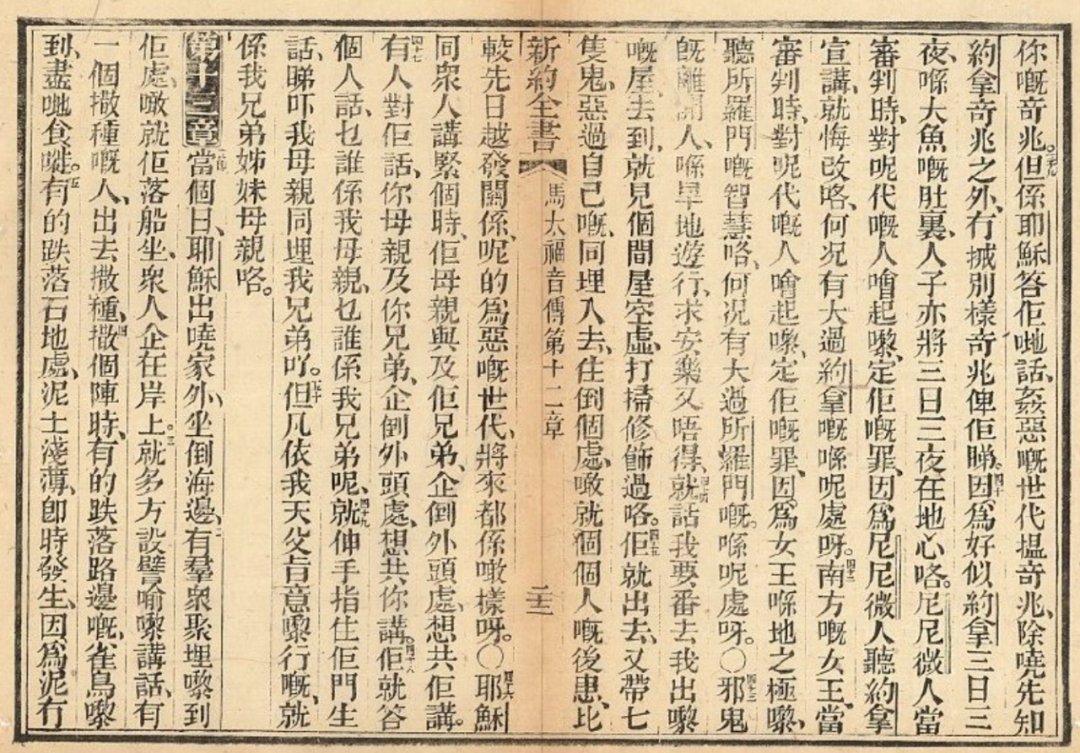 你嘅奇兆。卅九但係耶穌答佢哋話、姦惡嘅世代搵奇兆、除嘵先知
約拿奇兆之外、冇搣別樣奇兆俾佢睇。四十因爲好似約拿三日三
夜喺大魚嘅肚裏、人子亦將三日三夜在地心咯。尼尼微人當
審判時、對呢代嘅人噲起嚟、定佢嘅罪、因爲尼尼微人聽約拿
宣講、就悔改咯、何況有大過約拿嘅喺呢處呀。四二南方嘅女王、當
審判時、對呢代嘅人噲起嚟、定佢嘅罪、因爲女王喺地之極嚟、
聽所羅門嘅智慧咯、何況有大過所羅門嘅、喺呢處呀。〇四三邪鬼
旣離開人、喺旱地遊行、求安樂又唔得、四四就話我要番去我出嚟
嘅屋、去到、就見個間屋空虛、打掃修飾過咯。四五佢就出去、又帶七
隻鬼、惡過自己嘅、同埋入去、住倒個處、噉就個個人嘅後患、比
新約全書 馬太福音傳第十二章
較先日越發關係、呢的爲惡嘅世代、將來都係噉樣呀。〇四六耶穌
同衆人講緊個時、佢母親與及佢兄弟、企倒外頭處、想共佢講。
四七有人對佢話、你母親及你兄弟、企倒外頭處、想共你講。四十八佢就答
個人話、乜誰係我母親、乜誰係我兄弟呢、四九就伸手指住佢門生
話、睇吓我母親同埋我兄弟吖。五十但凡依我天父旨意嚟行嘅、就
係我兄弟姊妹母親咯。
第十三章 當個日、耶穌出嘵家外、坐倒海邊、二有羣衆聚埋嚟到
佢處、噉就佢落船坐、衆人企在岸上。三就多方設譬喻嚟講話、有
一個撒種嘅人、出去撒種、四撒個陣時、有的跌落路邊嘅、雀鳥嚟
到、盡哋食嘥。五有的跌落石地處、泥土淺薄、卽時發生、因爲泥冇